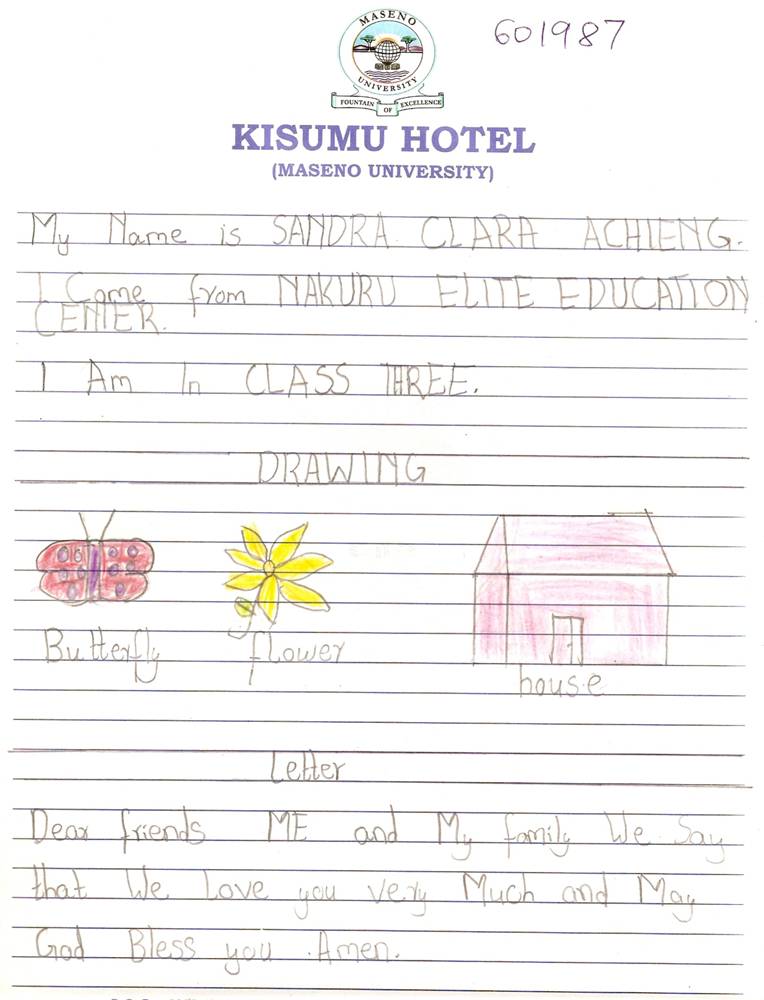 MASENO
UNIVERSITY
FOUNTAIN OF EXCELLENCE
601987
KISUMU HOTEL
(MASENO UNIVERSITY)
My Name is SANDRA CLARA ACHIENG.
I Come from NAKURU ELITE EDUCATION
CENTER.
I Am In CLASS THREE.
DRAWING
Butterfly flower house
Letter
Dear friends ME and My family We Say
that We Love you very Much and May
God Bless you Amen.